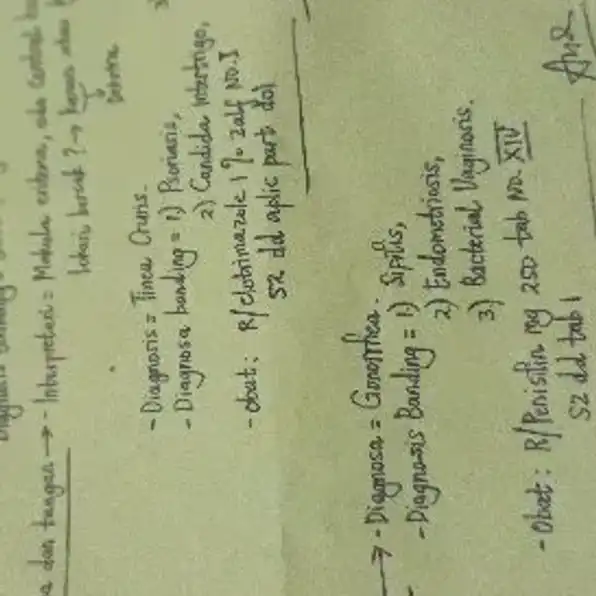 a dan tangan → - Interpretasi = Makula eritema, ada central
lokasi bercak ? →
- Diagnosis = Tinea Cruris.
- Diagnosa banding = 1) Psoriasis,
2) Candida Intertrigo,
- Obat : R/ Clotrimazole 1 % zalf NO. I
S2 dd aplic part dol
→ - Diagnosa = Gonorrhea.
- Diagnosis Banding = 1) Sipilis,
2) Endometriosis,
3) Bacterial Vaginosis.
- Obat : R/ Penisilin mg 250 tab NO. XIV
S2 dd tab 1